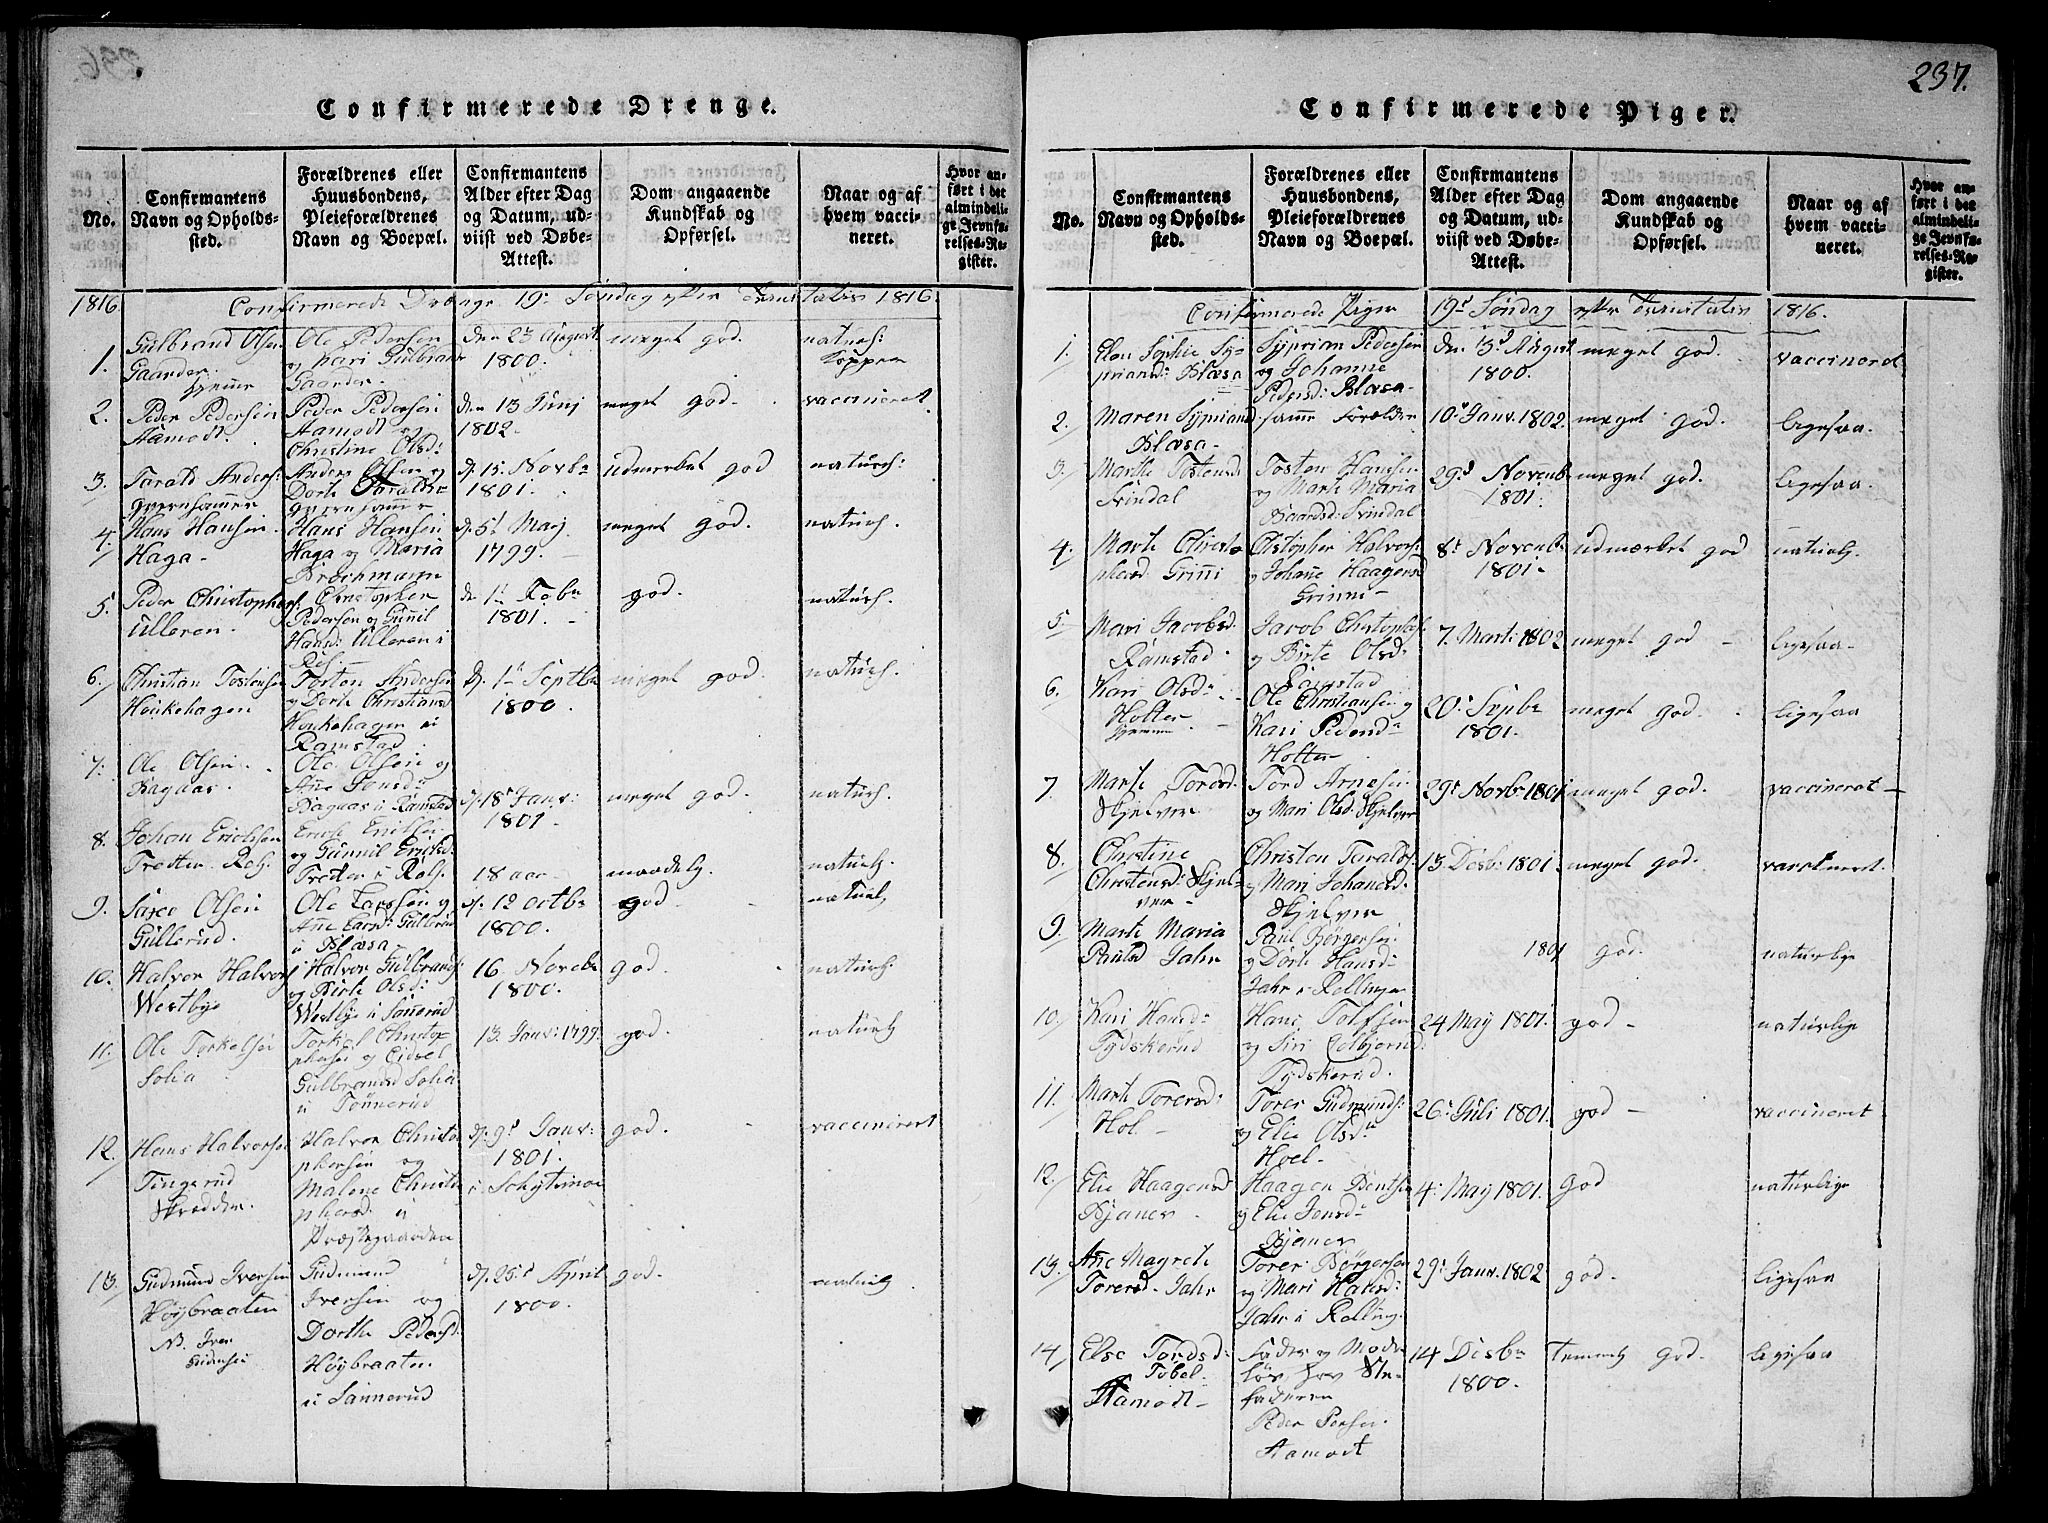 237.
Confirmerede Drenge.
No.
Confirmantens
Navn og Opholds-
sted.
Forældrenes eller
Huusbondens,
Pleieforældrenes
Navn og Boepæl.
Confirmantens
Alder efter Dag
og Datum, ud-
viist ved Døbe-
Attest.
Dom angaaende
Kundskab og
Opførsel.
Naar og af
hvem vacci-
neret.
Hvor an-
ført i det
almindeli-
ge Jevnfø-
relses-Re-
gister.
1816 Confirmerede Drenge 19de Søndag efter Trinitatis 1816.
1.
Gulbrand Olsen
Gaarder
Ole Pedersen
og Kari Gulbran
Gaarder.
den 23 August
1800.
meget god.
naturl:
Kopper
2.
Peder Pedersen
Aamodt.
Peder Pedersen
Aamodt og
Christine Olsd:
den 13 Junj
1802
meget god.
vaccineret
3.
Tarald Anders:
Anders Olsen og
Dorte Taralds-
d. 15. Novbr
1801.
udmerket god
naturl:
4.
Hans Hansen
Haga-
Hans Hansen
Haga og Maria
Brochmann
d. 5t May
1799.
meget god.
naturl.
5.
Peder Christophers:
Ulleren.
Christopher
Pedersen og Gunil
Hansd: Ulleren i
d. 1te Febr
1801.
god.
naturl.
6.
Christian Tostensen
Honkehagen
Torsten Andersen
og Dorte Christiansd
Honkehagen i
Ramstad
d. 1te Septbr
1800.
meget god.
naturl.
7.
Ole Olsen
Bagaas.
Ole Olsen og
Ane Jonsd:
Bagaas i Ramstad
d. 18de Janv:
1801.
meget god.
naturl.
8.
Johan Erichsen
og Gunnil Ericksd:
Trætter i
18 aar
maadelig
naturlig
9.
Olsen
Gullerud.
Ole Larssen og
Ane Larsd: Gullerud
i Blæsa
d. 12 octbr
1800.
god
naturlig
10.
Halvor Halvors
Westbye
Halvor Gulbrands:
og Birte Olsd:
Westbye i Sannerud
16 Novebr
1800.
god.
naturl:
11.
Ole Torkelsen
Solia
Torkel Christo
phersen og Eidsel
Gulbrandsd Solia
i Tønnerud
13. Janv: 1799.
god.
naturlig
12.
Hans Halvorsen
Tingerud
Skrædder.
Halvor Christo
phersen og
Malene Christo
phersd. i
Præstegaarden
d. 9de Janv:
1801.
god.
vaccineret
13.
Gudmund Iversen
Høybraaten
Gudmund
Iversen og
Dorthe Pedersd:
Høybraaten
i Sannerud
d. 25d April
1800.
god.
naturlig
Confirmerede Piger.
No.
Confirmantens
Navn og Opholds-
sted.
Forældrenes eller
Huusbondens,
Pleieforældrenes
Navn og Boepæl.
Confirmantens
Alder efter Dag
og Datum, ud-
viist ved Døbe-
Attest.
Dom angaaende
Kundskab og
Opførsel.
Naar og af
hvem vacci-
neret.
Hvor an-
ført i det
almindeli-
ge Jevnfø-
relses-Re-
gister.
Confirmerede Piger 19de Søndag efter Trinitatis 1816.
1.
Elen Sophie Sy-
priansd: Blæsa
Syprian Pedersen
og Johanne
Pedersd: Blæsa
den 3d August
1800.
meget god.
vaccineret
2.
Maren Sypriansd
Blæsa-
samme Forælder
10de Janv. 1802.
meget god.
ligesaa.
3.
Marthe Tostensd:
Svindal
Tosten Hansen
og Marte Maria
Baardsd: Svindal
29de Novenb
1801.
meget god.
ligesaa.
4.
Marte Christo
phersd. Grini
Christopher Halvors:
og Johane Haagensd
Grinni-
8de Novenb
1801.
udmærket god
naturlig.
5.
Mari Jacobsd:
Ramstad.
Jacob Christophers:
og Birte Olsd:
Ramstad
7. Marti 1802
meget god
ligesaa-
6.
Kari Olsd:
Holter
Ole Christiansen og
Kari Pedersd:
Holter
20de Septbr
1801.
meget god.
ligesaa
7.
Marte Tordsd:
Skjelver
Tord Arnesen
og Mari Olsd: Skjelver
29de Novbr 1801
meget god.
vaccineret
8.
Christine
Christensd: Skjel-
ver-
Christen Taralds:
og Mari Johansd.
Skjelver
13 Desb: 1801.
meget god.
vaccineret.
9.
Marte Maria
Paulsd Jahr
Paul Børgersen
og Dorte Hansd:
Jahr i Rollinge
1801
god.
naturlige
10.
Kari Hansd:
Tydskerud
Hans Tolfsen
og Siri
Tydskerud.
24 May 1801.
god-
naturlige
11.
Marte Torersd:
Hol-
Torer Gudmunds:
og Elie Olsd:
Hoel-
26de Juli 1801.
god-
vaccineret
12.
Elie Haagensd
Bjaner
Haagen Bentsen
og Elie Jensd:
Bjaner
4de May 1801.
god
naturlige
13.
Ane Magrete
Torersd. Jahr
Torer Børgersen
og Mari Hansd:
Jahr i Rolling
29de Janv. 1802
god.
ligesaa
14.
Else Tordsd:
Tobel.
Aamodt-
Fader og Moder
løs, hos Ste-
faderen
Peder Persen
Aamodt
14 Desbr
1800.
temmelig god.
ligesaa